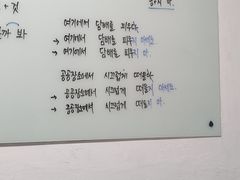 여기에서 담배를 피우다.
→ 여기에서 담배를 피우지 마세요.
→ 여기에서 담배를 피우지 마.
공공장소에서 시끄럽게 떠들다.
→ 공공장소에서 시끄럽게 떠들지 마세요.
→ 공공장소에서 시끄럽게 떠들지 마.